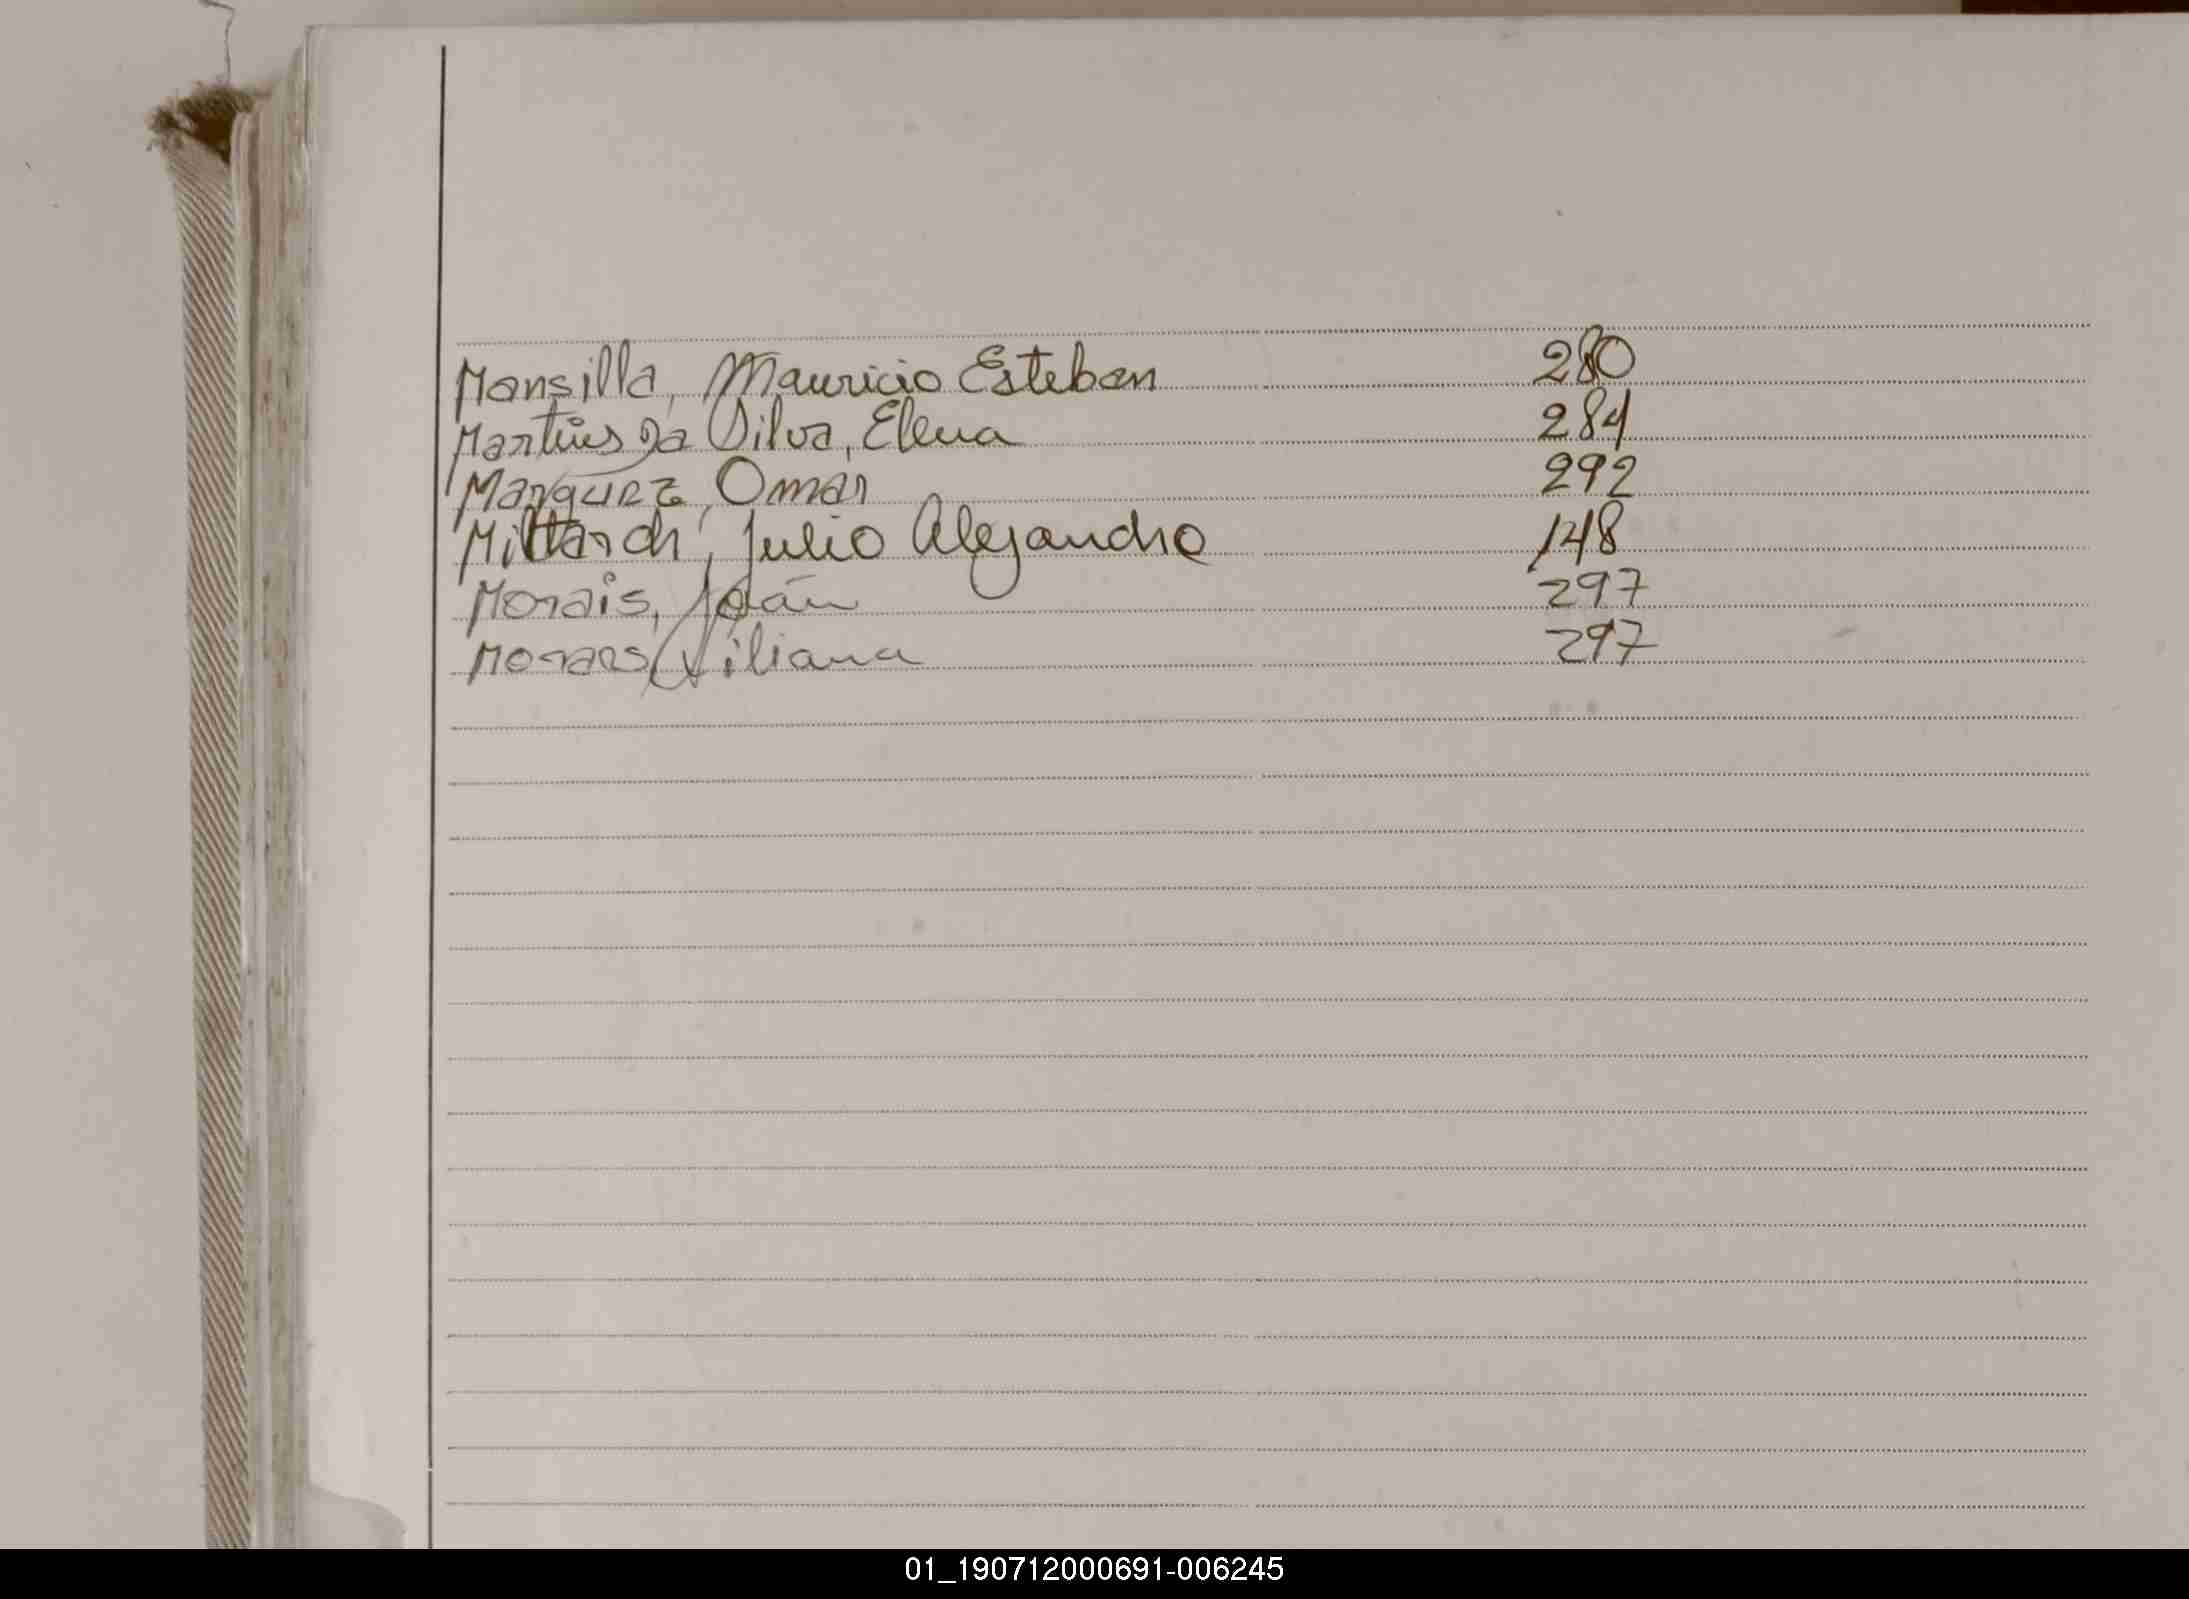 Mansilla, Mauricio Esteban 280
Martins Da Silva, Elena 284
Marquez, Omar 292
Julio Alejandro 148
Morais, Joán 297
Moraes, Viliana 297
01_190712000691-006245